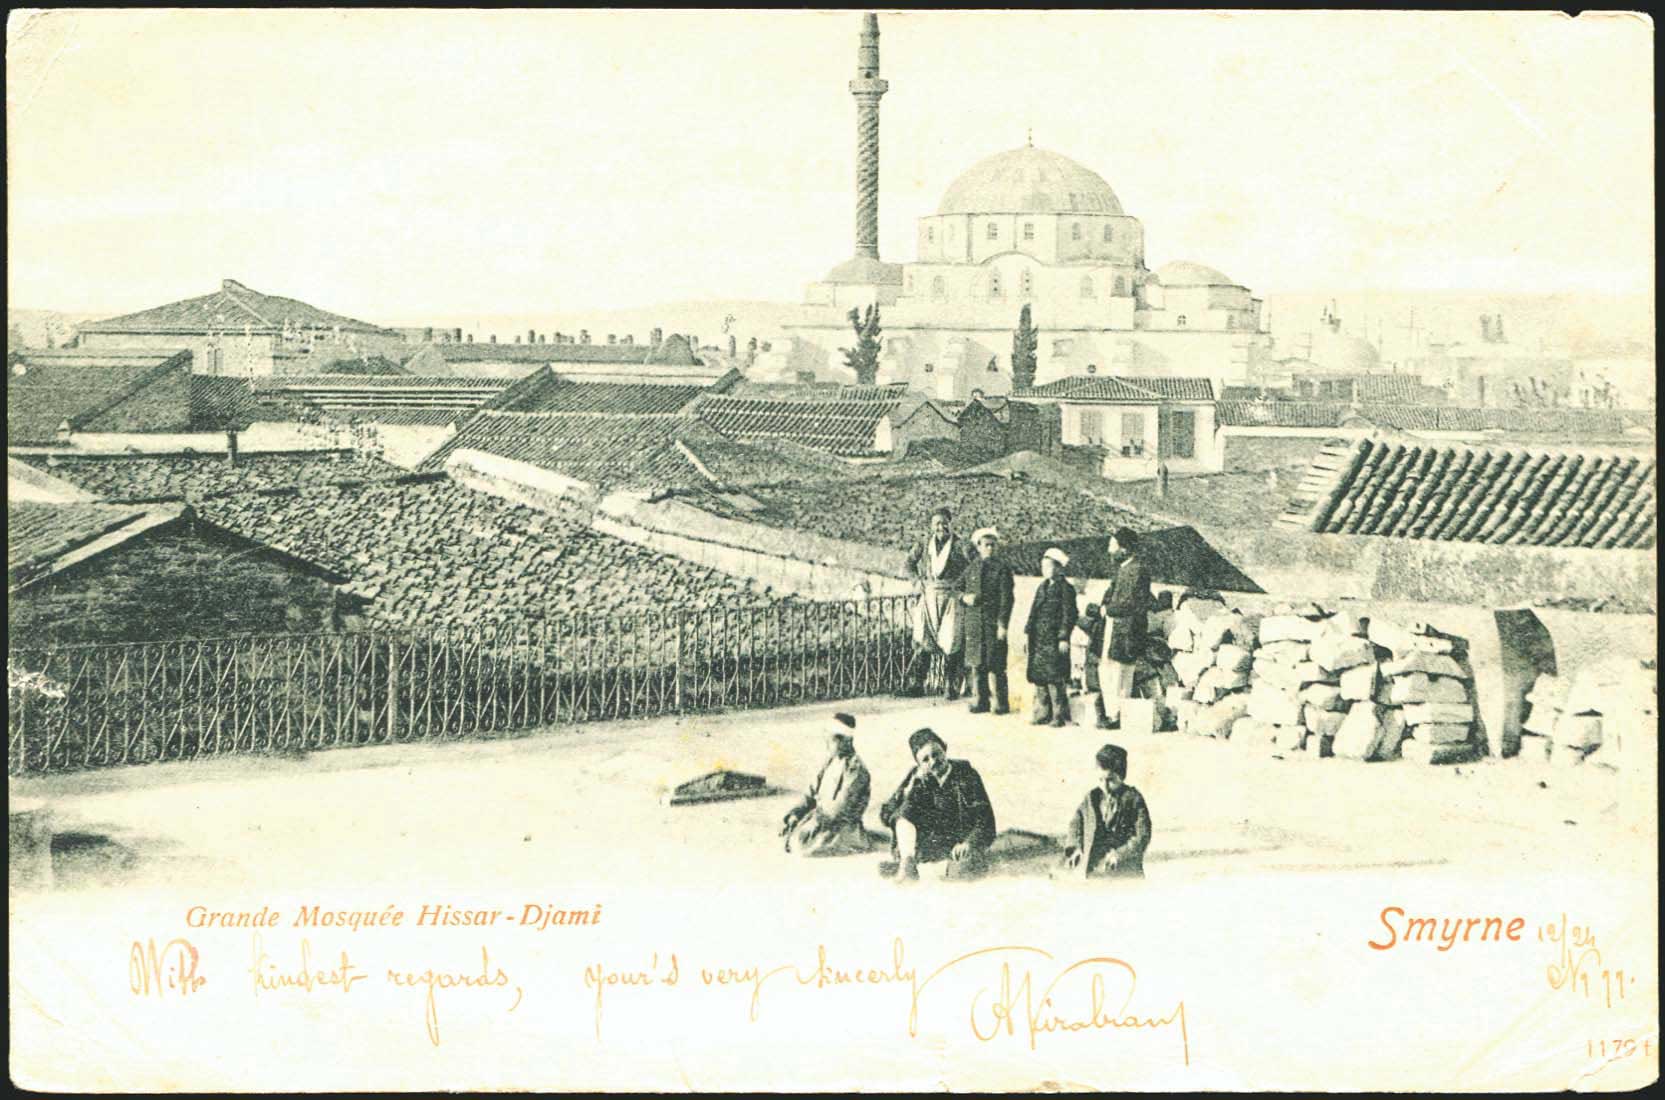 Grande Mosquée Hissar-Djami
Smyrne 12/24
With kindest regards, your's very sincerly
1179